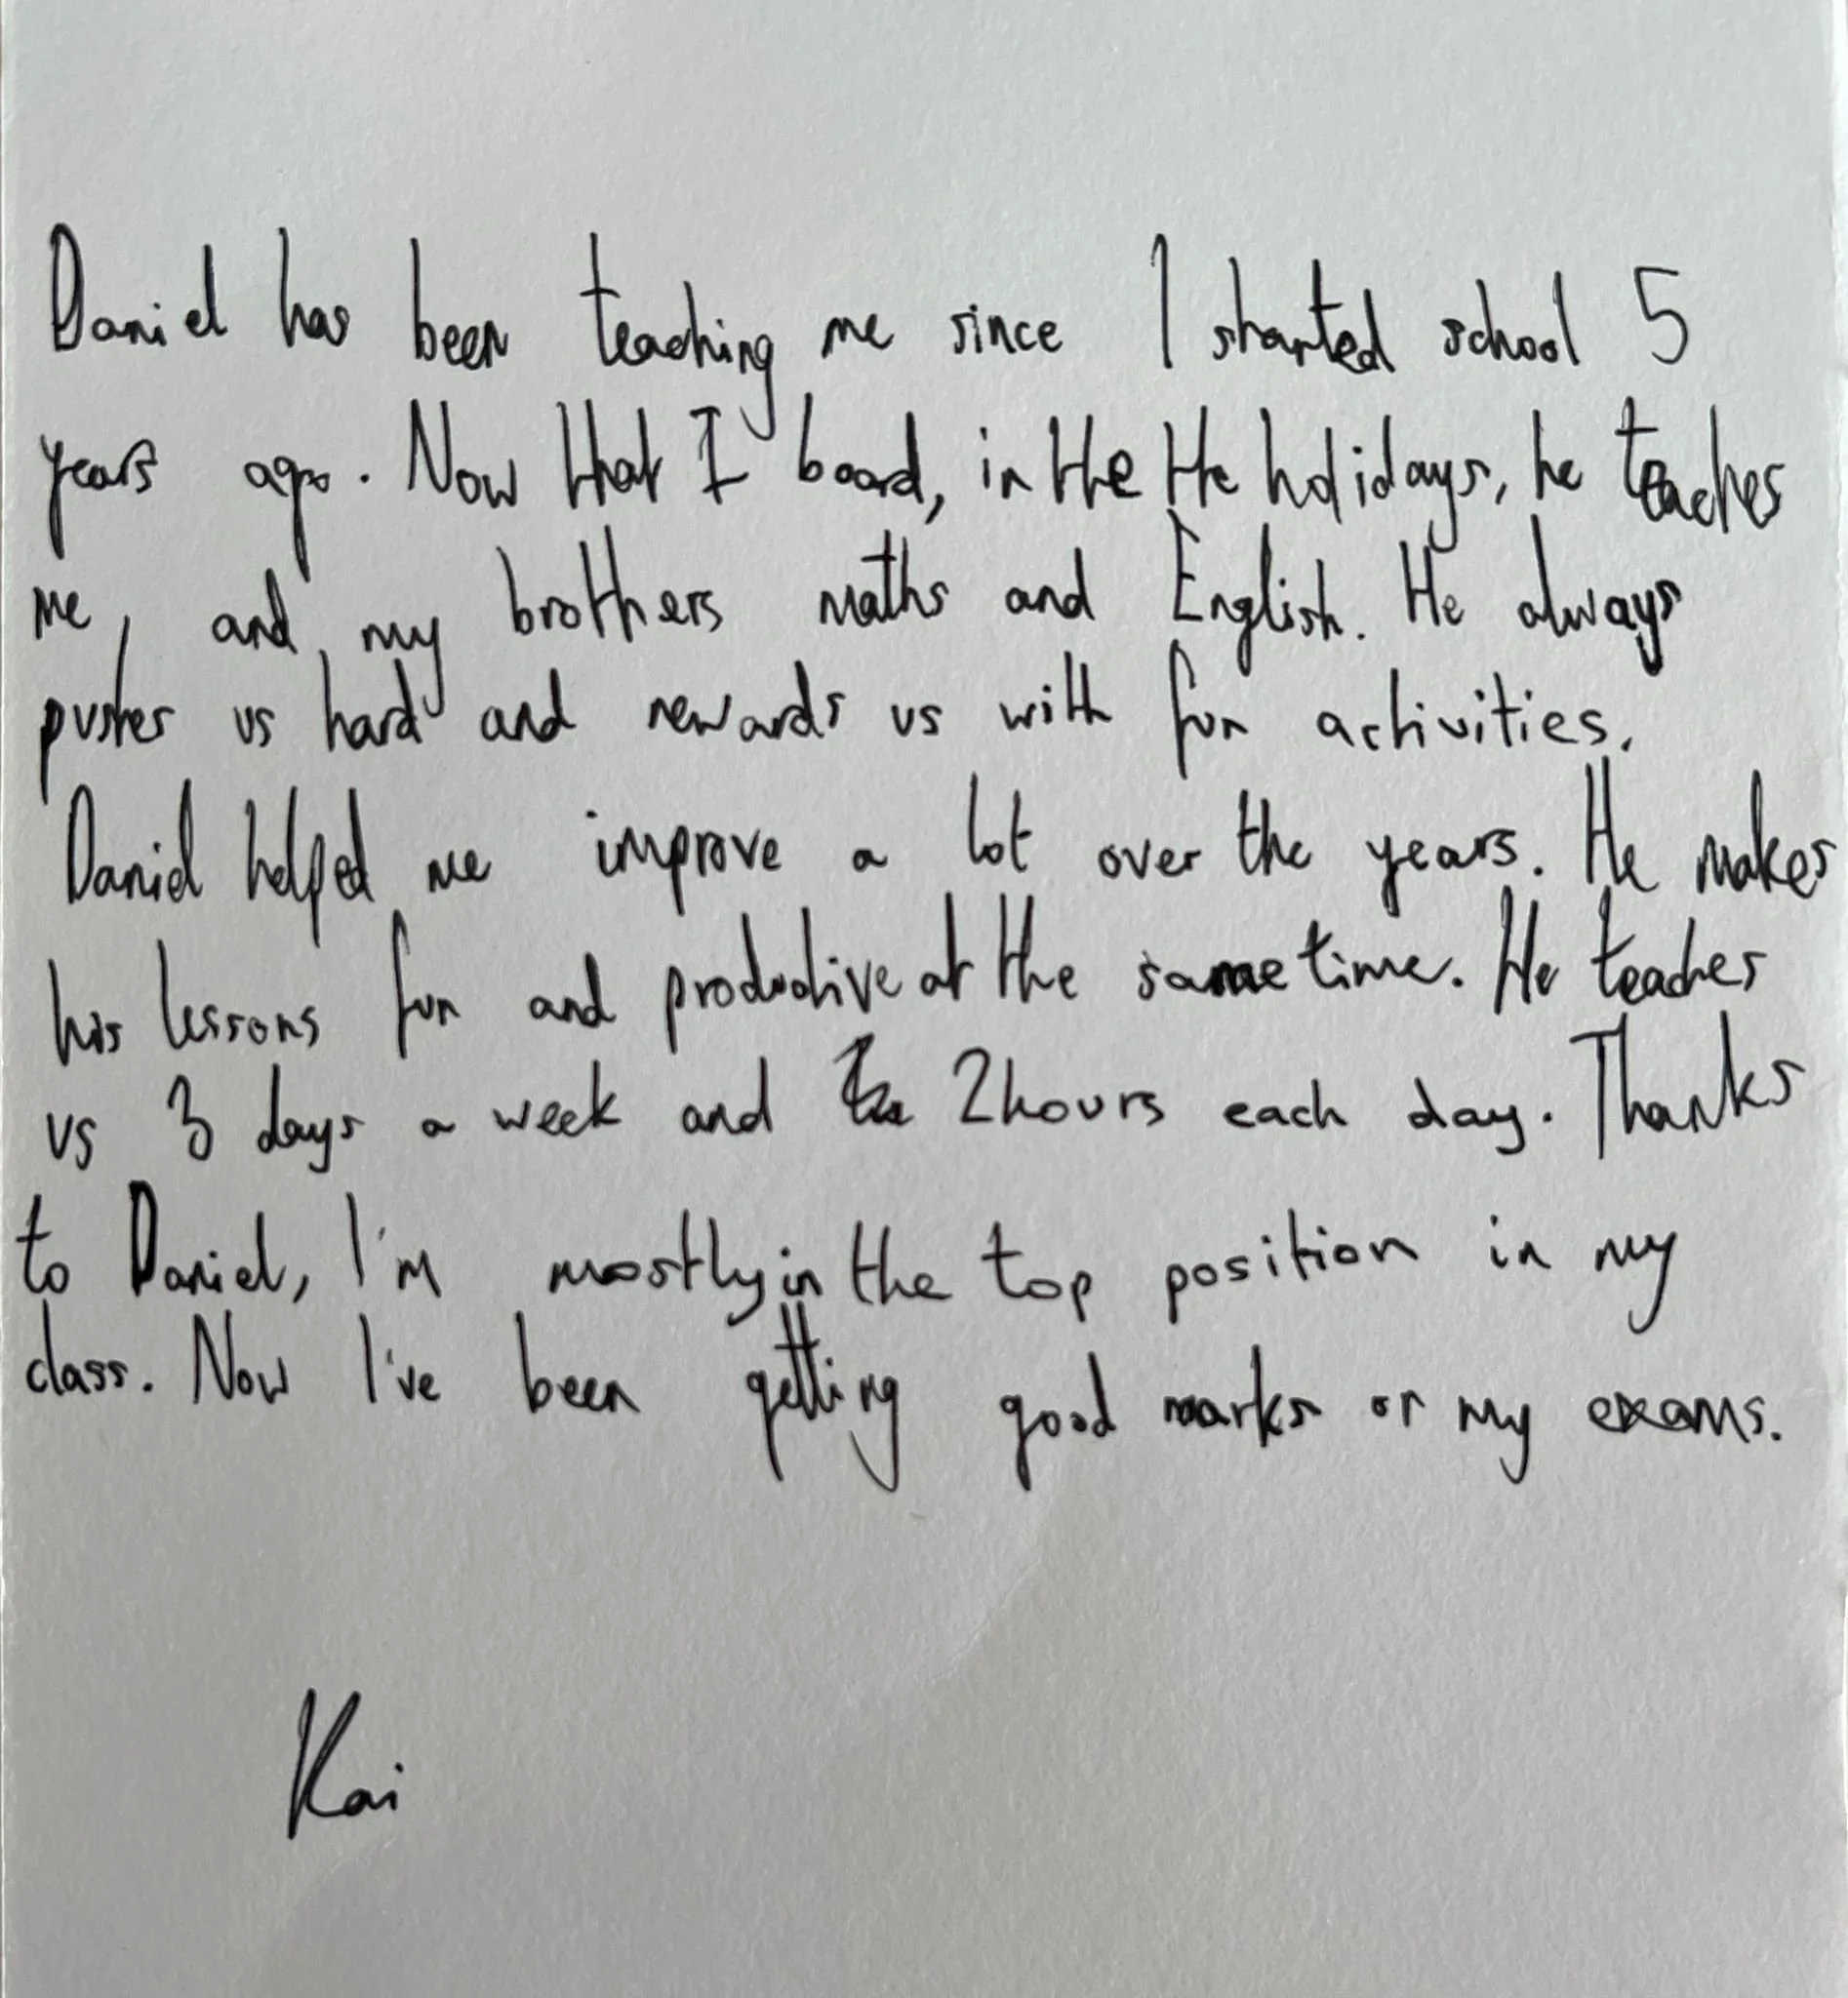 Daniel has been teaching me since I started school 5
years ago. Now that I board, in the the holidays, he teaches
me, and my brothers maths and English. He always
pushes us hard and rewards us with fun activities.
Daniel helped me improve a lot over the years. He makes
his lessons fun and productive at the same time. He teaches
us 3 days a week and 2 hours each day. Thanks
to Daniel, I'm mostly in the top position in my
class. Now I've been getting good marks or my exams.
Kai